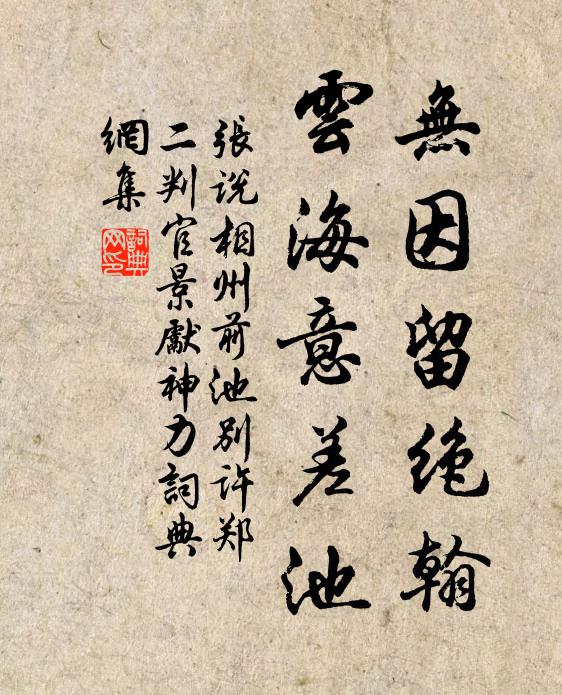 無因留絶翰
雲海意差池
張説相州前池別許郑
二判官景獻神力詞典
網集
詞典
网印